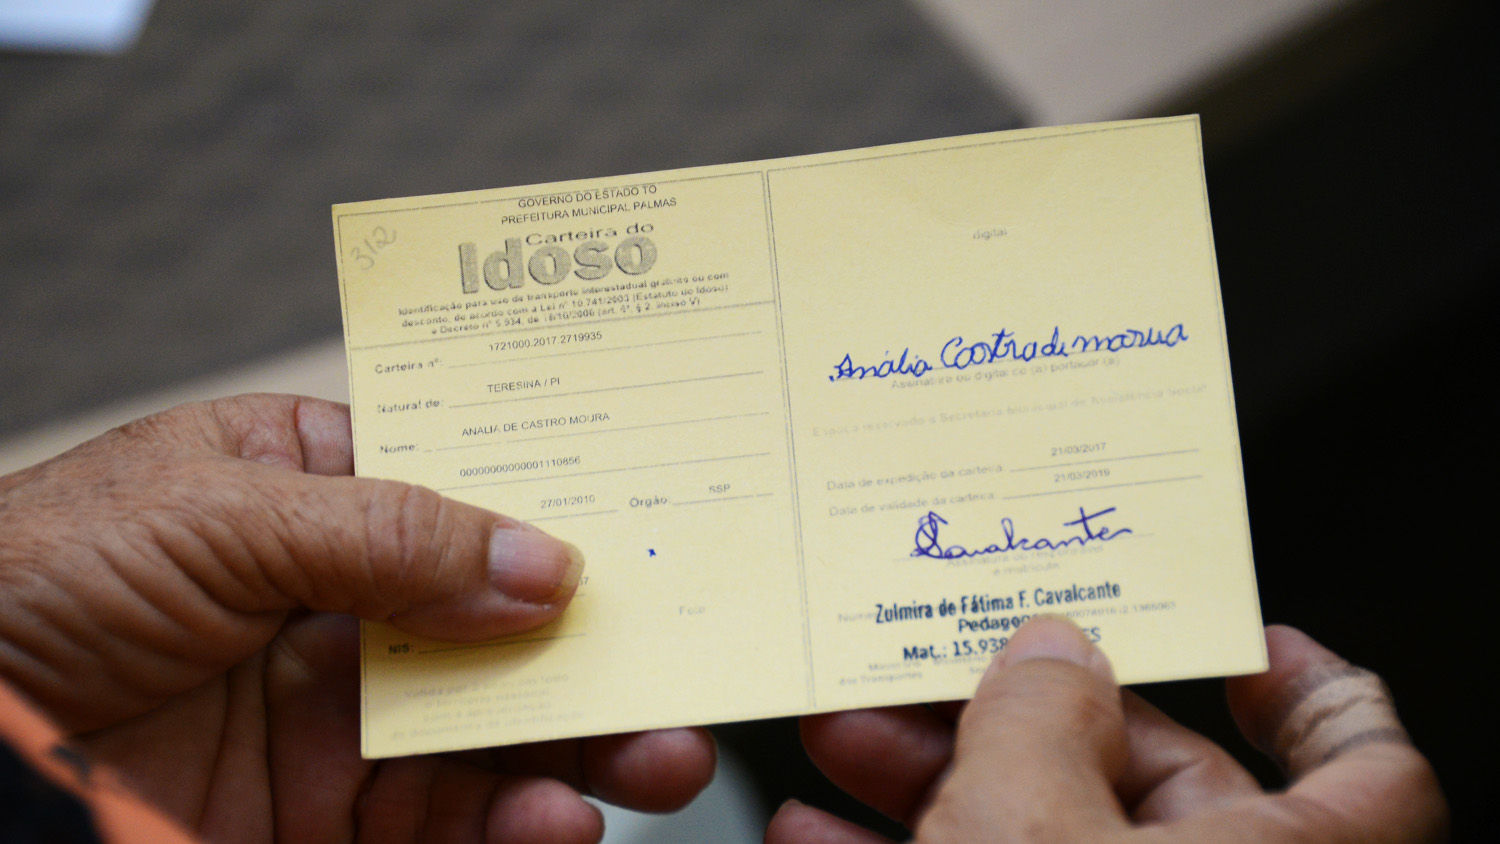 312
GOVERNO DO ESTADO TO
PREFEITURA MUNICIPAL PALMAS
Carteira do
Idoso
Identificação para uso de transporte interestadual gratuito ou com
desconto, de acordo com a Lei nº 10.741/2003 (Estatuto do Idoso)
e Decreto nº 5.934, de 18/10/2006 (art. 6º, § 2, inciso V)
Carteira nº: 1721000.2017.2719935
Natural de: TERESINA / PI
Nome: ANALIA DE CASTRO MOURA
0000000000001110856
27/01/2010 Orgão: SSP
x
57
Foto
NIS:
documento de identificação
digital
Anália Castro de moura
Assinatura ou digital do (a) portador (a)
Espaço reservado a Secretaria Municipal de Assistência Social
Data de expedição da carteira 21/03/2017
Data de validade da carteira 21/03/2019
Cavalcante
Assinatura do responsável
e matrícula
Zulmira de Fátima F. Cavalcante
Mat.: 15.938
dos Transportes